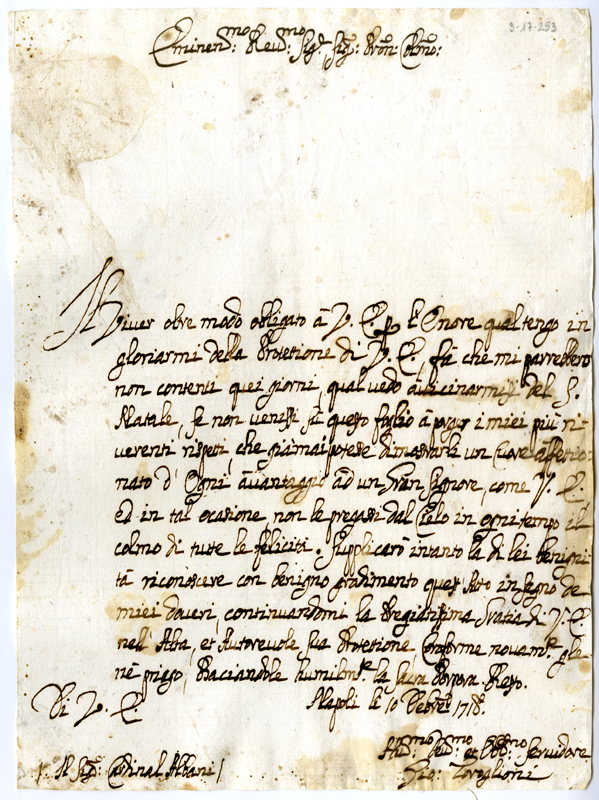 9-17-253
Eminen:mo Reu:mo Sig:r Sig:r Pron: Colmo:
Il viver oltre modo obligato à V. E. p l'Onore qual tengo in
gloriarmi della Protetione di V. E. fà che mi parrebbero
non contenti quei giorni, qual vedo avicinarmisi del S.
Natale, se non venissi sù questo foglio à porger i miei più ri-
verenti rispeti, che giàmai potesse dimostrarle un Cuore affetio-
nato d'Ogni avantaggio ad un Gran Signore, come V. E.
Ed in tal ocasione non le pregassi dal Cielo in ogni tempo il
colmo di tutte le felicità. Supplicarò intanto la di lei benigni
tà riconoscere con benigno gradimento quest' atto in segno de
miei doveri, continuandomi la Pregiatissima Gratia di V. E.
nell' Alta, et Autorevole sua Protetione, Conforme novam.te gle
ne priego, Baciandole humilm.te la Sacra Porpora. Resto.
Napoli li 10 Decbre 1718.
Di V. E.
Hu:mo Deu:mo et Obb:mo Servidore
/ Al Sig:r Cardinal Albani /
Gio: